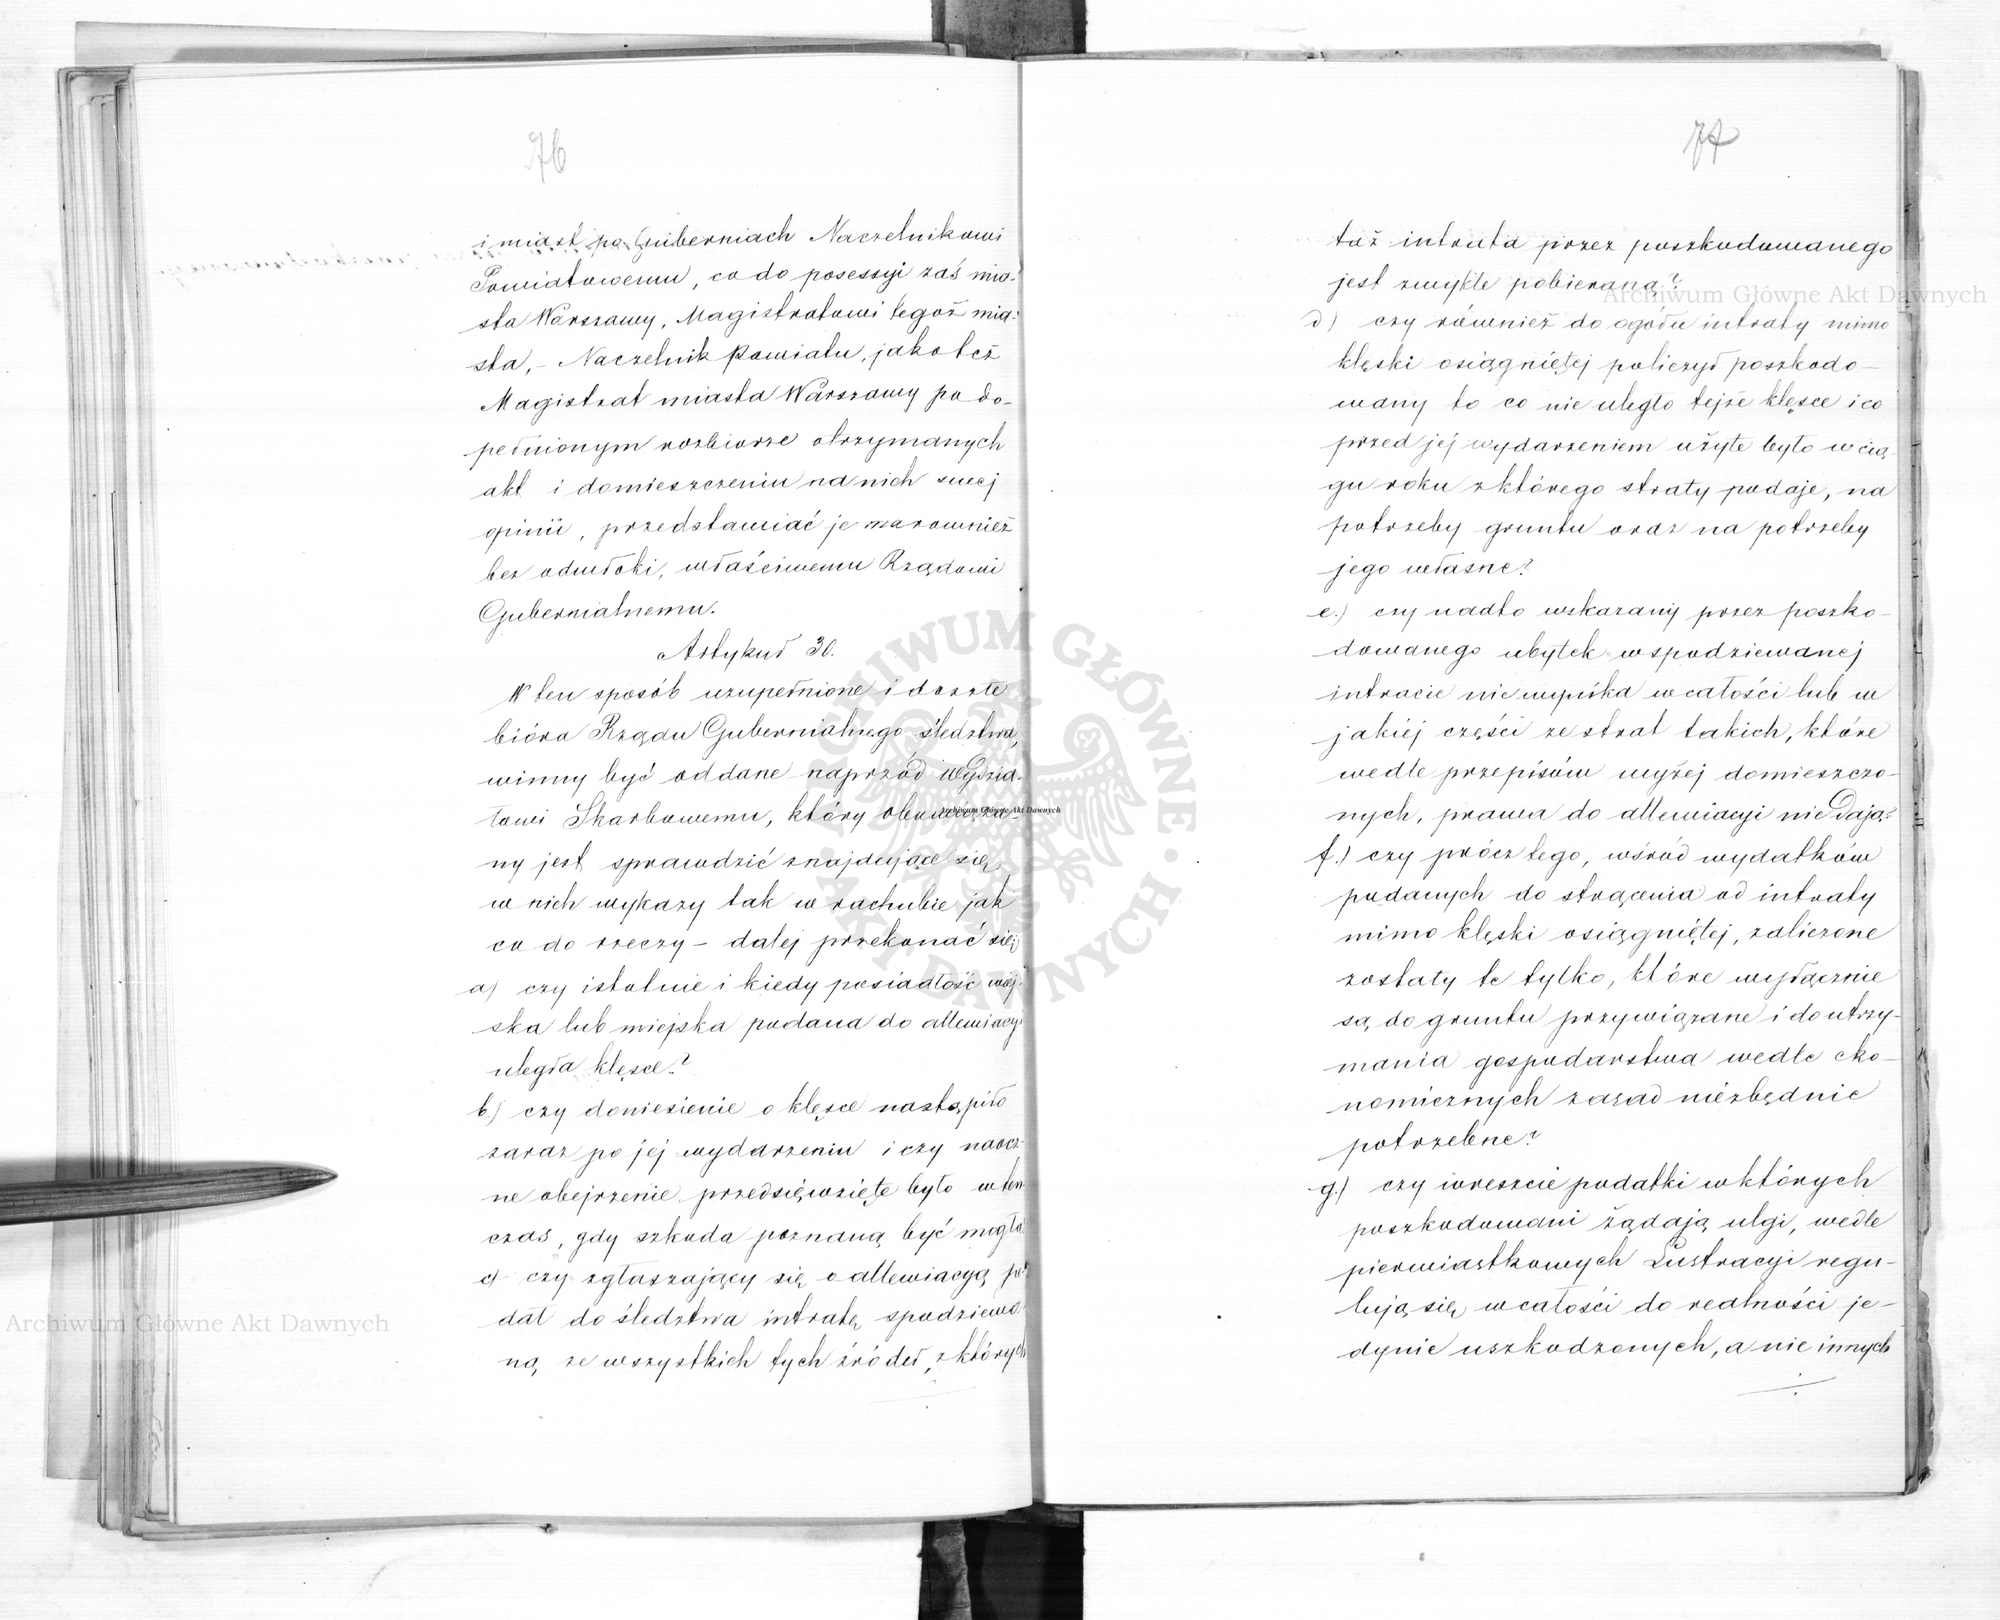 76
i miast po Guberniach Naczelnikowi
Powiatowemu, co do posessyi zaś mia-
sta Warszawy, Magistratowi tegoż mia-
sta, – Naczelnik Powiatu, jakoteż
Magistrat miasta Warszawy po do-
pełnionym rozbiorze otrzymanych
akt i domieszczeniu na nich swej
opinii, przedstawiać je ma również
bez odwłoki, właściwemu Rządowi
Gubernialnemu.
Artykuł 30.
W ten sposób uzupełnione i doszłe
bióra Rządu Gubernialnego śledztwa,
winny być oddane naprzód Wydzia-
łowi Skarbowemu, który obowiąza-
ny jest sprawdzić znajdujące się
w nich wykazy tak w rachubie jak
co do rzeczy – dalej przekonać się;
a) czy istotnie i kiedy posiadłość wiej-
ska lub miejska podana do allewiacyi
uległa klęsce?
b) czy doniesienie o klęsce nastąpiło
zaraz po jej wydarzeniu i czy naocz-
ne obejrzenie przedsięwzięte było w ten
czas, gdy szkoda poznaną być mogła
c) czy zgłaszający się o allewiacyą po-
dał do śledztwa intratę spodziewa-
ną ze wszystkich tych źródeł, z których
77
taż intrata przez poszkodowanego
jest zwykle pobieraną?
d) czy również do ogółu intraty mimo
klęski osiągniętej policzył poszkodo-
wany to co nie uległo tejże klęsce i co
przed jej wydarzeniem użyte było w cią-
gu roku z którego straty podaje, na
potrzeby gruntu oraz na potrzeby
jego własne?
e.) czy nadto wskazany przez poszko-
dowanego ubytek w spodziewanej
intracie nie wynika w całości lub w
jakiéj części ze strat takich, które
wedle przepisów wyżej domieszczo-
nych, prawa do allewiacyi nie dają?
f.) czy prócz tego, wśród wydatków
podanych do strącenia od intraty
mimo klęski osiągniętej, zaliczone
zostały te tylko, które wyłącznie
są do gruntu przywiązane i do utrzy-
mania gospodarstwa wedle eko-
nomicznych zasad niezbędnie
potrzebne?
g.) czy wreszcie podatki w których
poszkodowani żądają ulgi, wedle
pierwiastkowych Lustracyi regu-
lują się w całości do realności je-
dynie uszkodzonych, a nie innych
Archiwum Główne Akt Dawnych
Archiwum Główne Akt Dawnych
Archiwum Główne Akt Dawnych
ARCHIWUM GŁÓWNE AKT DAWNYCH